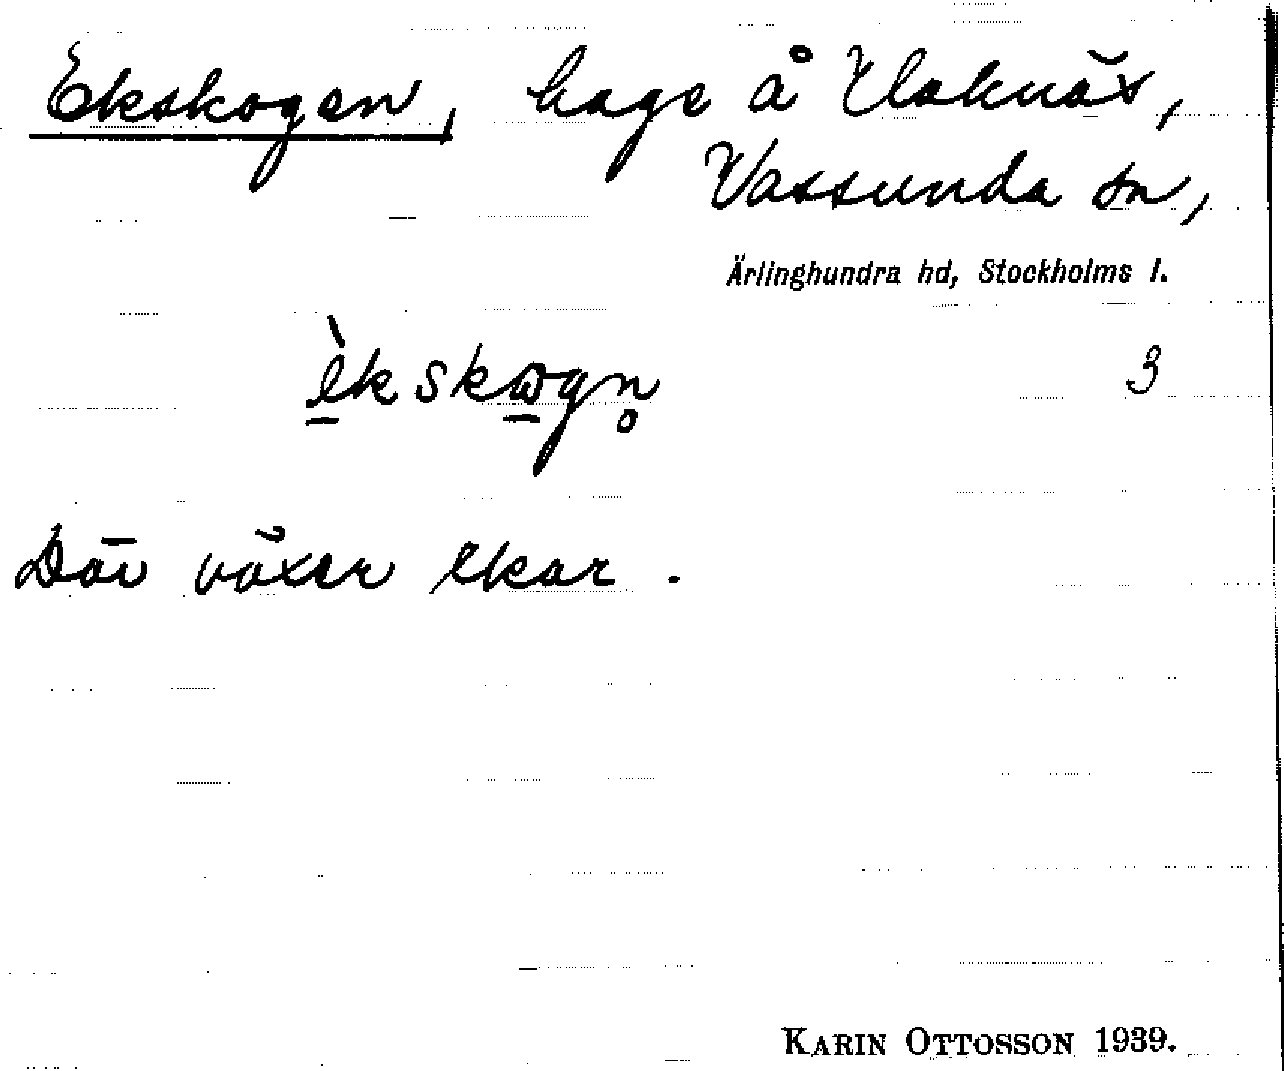 Ekskogen, hage å Vloknäs,
Vassunda sn,
Ärlinghundra hd, Stockholms l.
3
Där växer ekar.
KARIN OTTOSSON 1939.